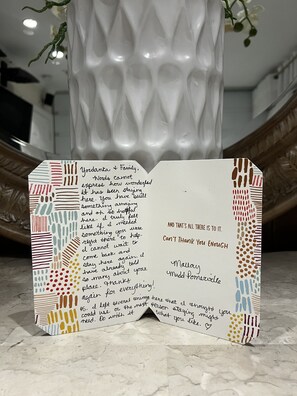 Yordanka & Family,
Words cannot
express how wonderful
it has been staying
here. You have built
something amazing
and oh so
here. I truly felt
like if I needed
something you were
right there to help
I cannot wait to
come back and
stay here again. I
have already told
so many about your
place. Thanks
again for everything!
I left several things here that I thought you
could use or the next person staying might
need. Do with it what you like. ♡
AND THAT'S ALL THERE IS TO IT.
Can't Thank You Enough